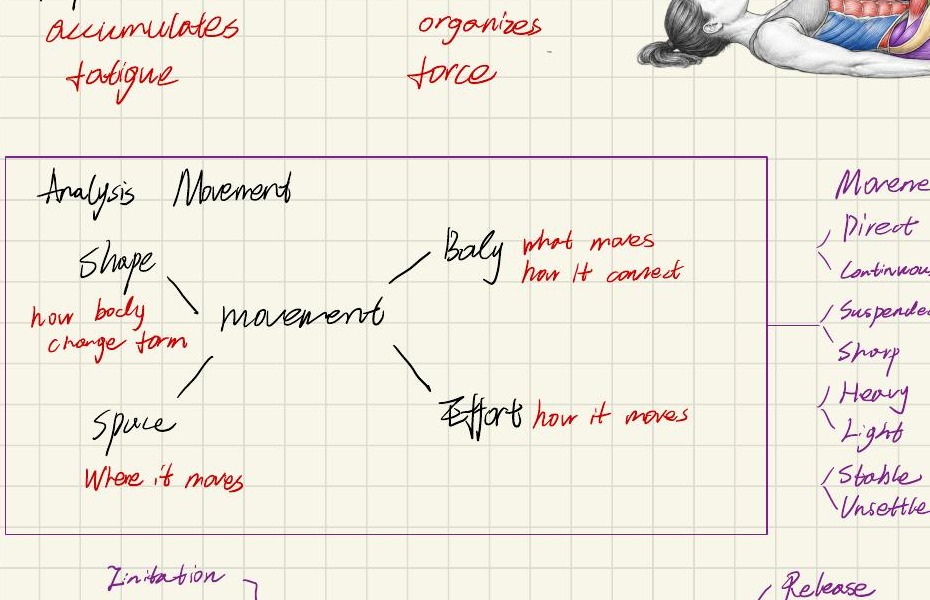 accumulates
fatigue
organizes
force
Analysis Movement
Shape
how body
change form
Space
Where it moves
movement
Body what moves
how It connect
Effort how it moves
Moveme
Direct
Continuous
Suspende
Sharp
Heavy
Light
Stable
Unsettle
Initation
Release